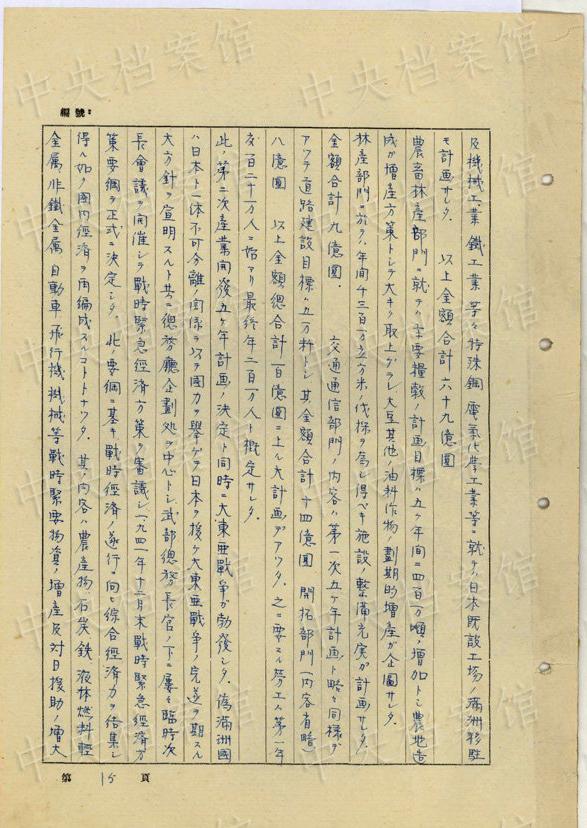 編號：
及機械工業 鐵工業 等々特殊鋼 電氣化学工業等ニ就テハ日本既設工場ノ滿洲移駐
モ計画サレタ。 以上金額合計 六十九億圓
農畜林産部門ニ就テハ主要糧穀ノ計画目標ハ五ヶ年間ニ四百万噸ノ増加トシ農地造
成ガ増産方策トシテ大キク取上ゲラレ大豆其他ノ油料作物ノ劃期的増産ガ企圖サレタ。
林産部門ニ於テハ年間千三百万立方米ノ伐採ヲ為シ得ベキ施設ノ整備充実ガ計画サレタ
金額合計九億圓。 交通通信部門ノ内容ハ第一次五ヶ年計画ト略々同様デ
アツテ道路建設目標ハ五万粁トシ其金額合計二十四億圓 開拓部門（内容省略）
八億圓 以上金額總合計一百億圓ニ上ル大計画デアツタ。之ニ要スル勞工ハ第一年
次一百二十万人ニ始マリ最終年二百万人ト概定サレタ。
此ノ第二次産業開發五ヶ年計画ノ決定ト同時ニ大東亜戰爭ガ勃發シタ。偽滿洲國
ハ日本ト一体不可分離ノ関係ヲ以テ國力ヲ擧ゲテ日本ヲ援ケ大東亜戰爭ノ完遂ヲ期スル
大方針ヲ宣明スルト共ニ總務廳企劃処ヲ中心トシ武部總務長官ノ下ニ屢々臨時次
長會議ヲ開催シテ戰時緊急經濟方策ヲ審議シ一九四一年十二月末戰時緊急經濟方
策要綱ヲ正式ニ決定シタ。此ノ要綱ニ基キ戰時經濟ノ遂行ニ向ヒ綜合經濟力ヲ結集シ
得ル如ク國内經濟ヲ再編成スルコトトナツタ。其ノ内容ハ農産物 石炭 鉄 液体燃料 輕
金属 非鐵金属 自動車 飛行機 機械等戰時緊要物資ノ増産及対日援助ノ増大
第 15 頁
中央档案馆